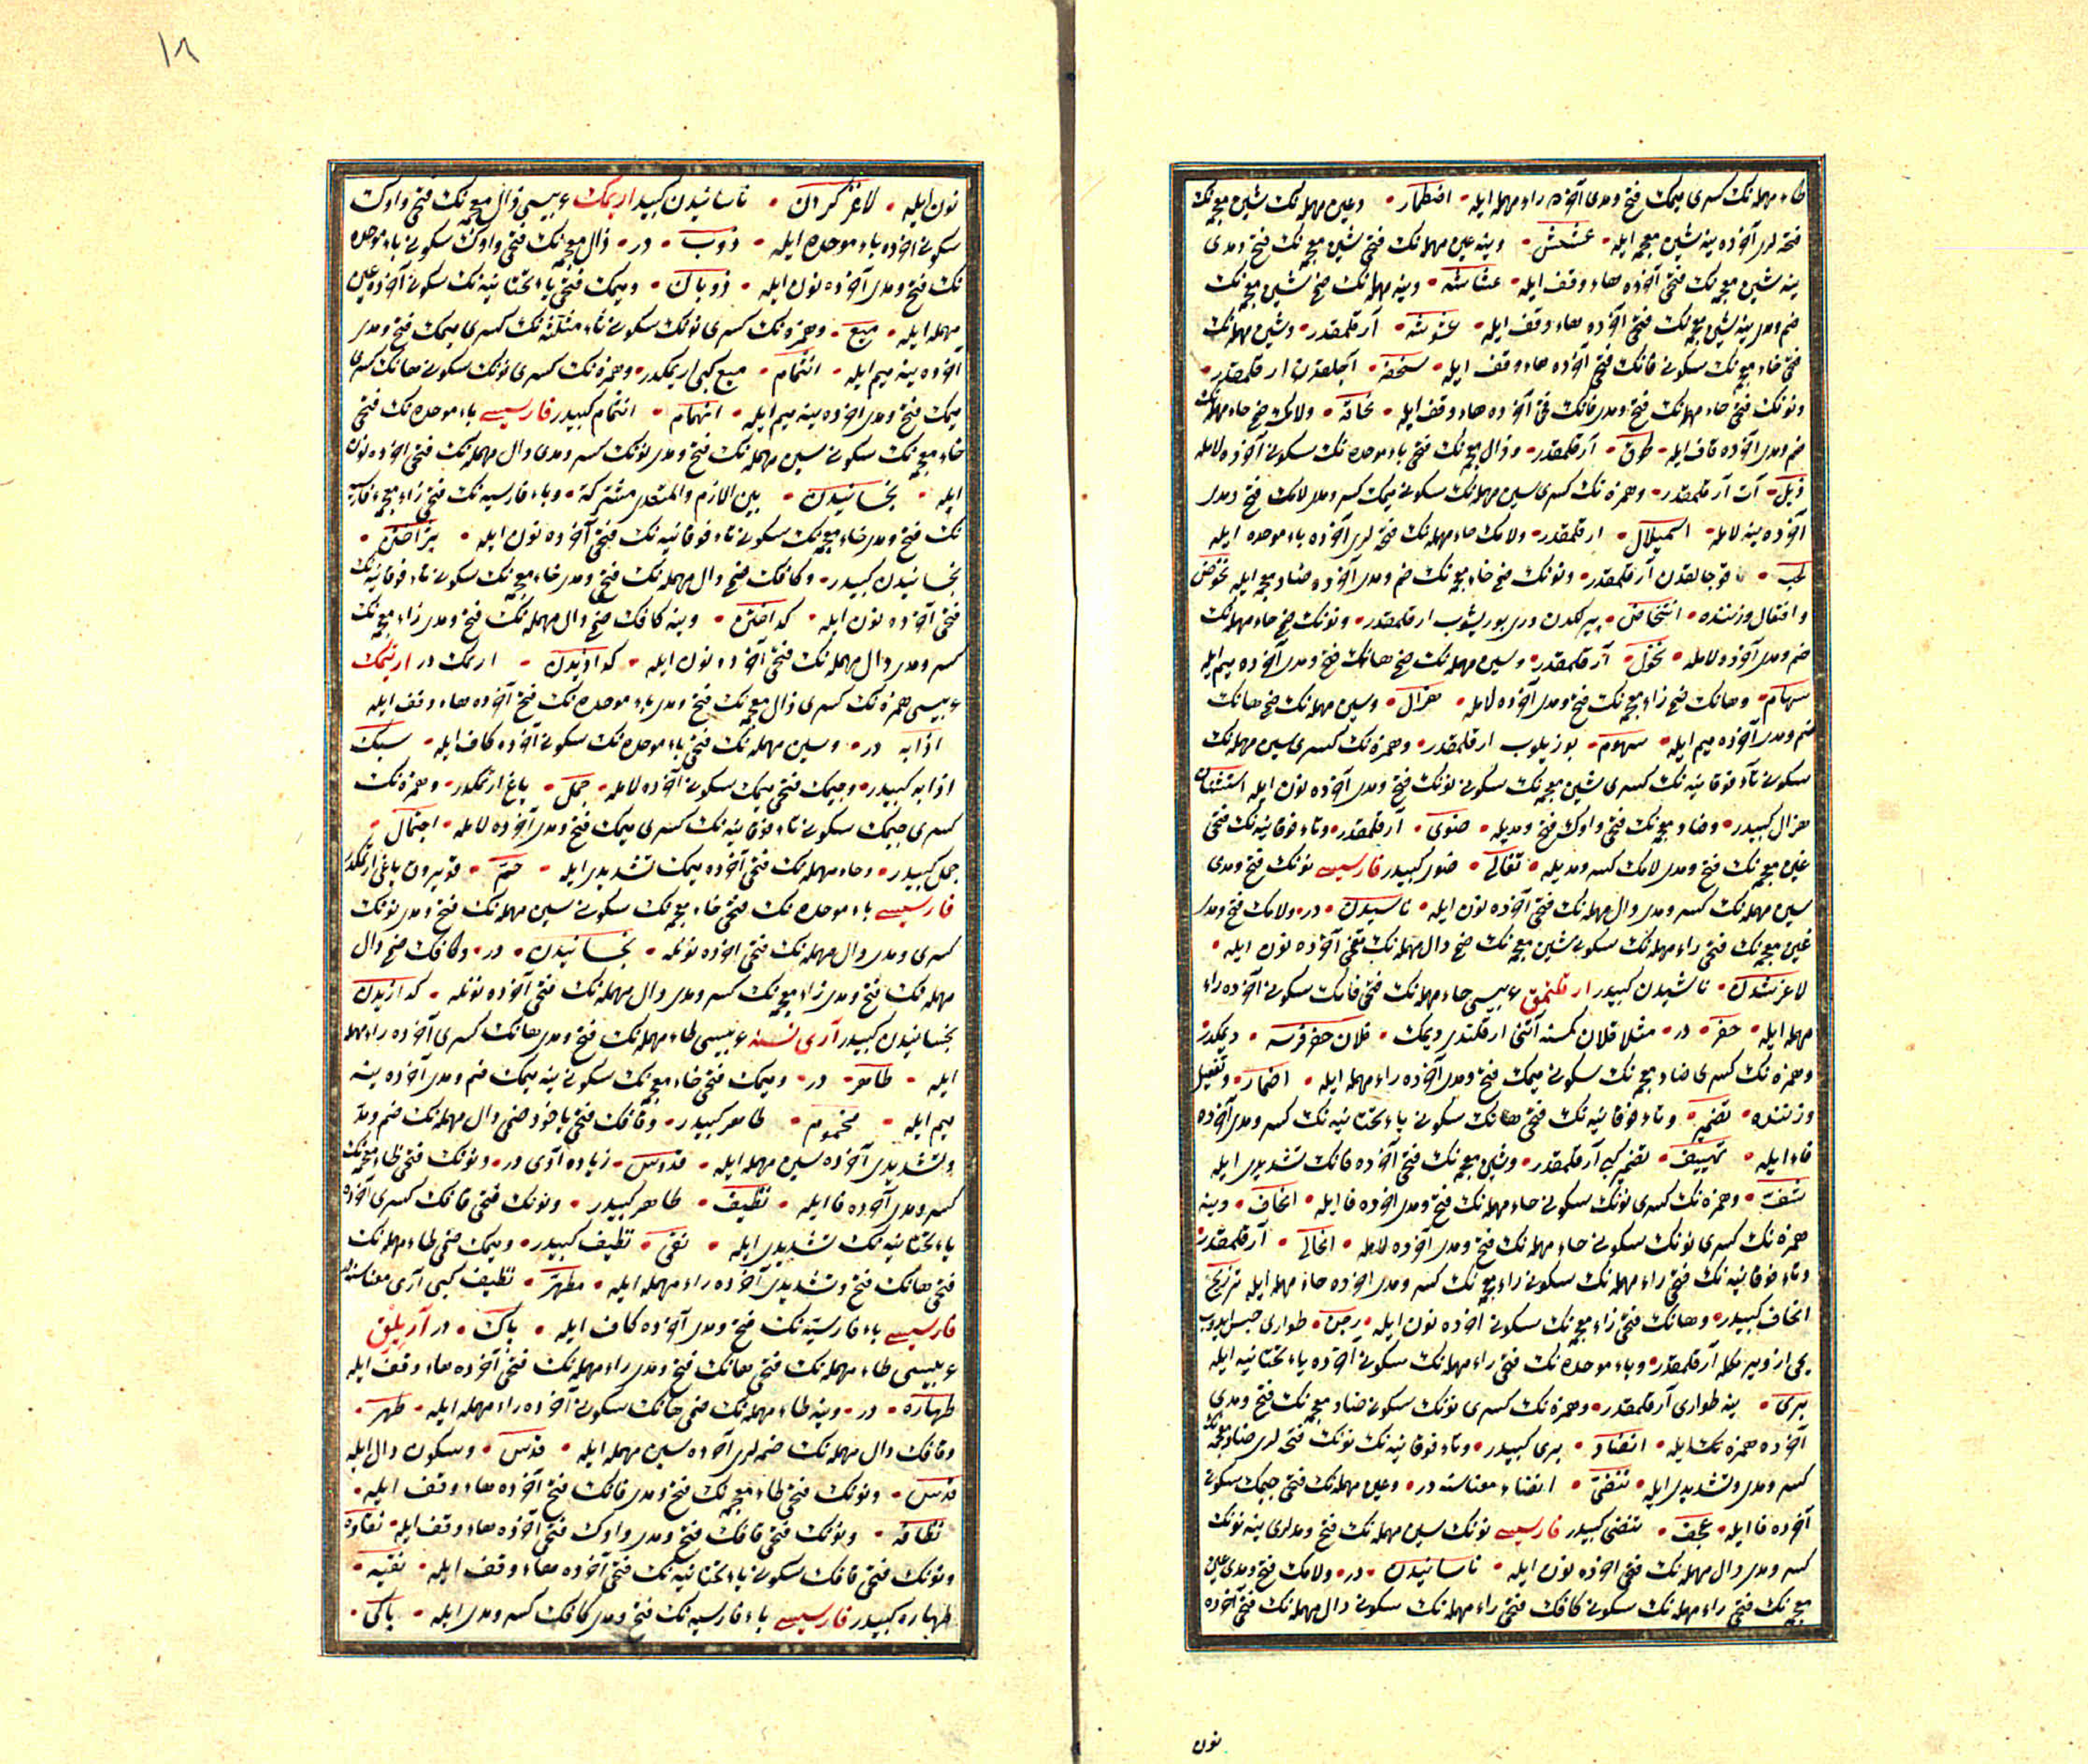 طاء مهمله نك كسرى ميمك فتح ومدى آخرده راء مهمله ايله اضطمار وعين مهمله نك شين معجمه نك
فتحه لرى آخرده ينه شين معجمه ايله عشش وينه عين مهمله نك فتحى شين معجمه نك فتح ومدى
ينه شين معجمه نك فتحى آخرده هاء وقف ايله عشاشه وينه مهمله نك ضمى شين معجمه نك
ضم ومدى ينه شين معجمه نك فتحى آخرده هاء وقف ايله عشوشه آرقلمقدر وشين مهمله نك
فتحى خاء معجمه نك سكونى فانك فتحى آخرده هاء وقف ايله سخفه آجلقدن ارقلمقدر
ونونك فتحى حاء مهمله نك فتح ومدى فانك فتحى آخرده هاء وقف ايله نحافة ولامك ضمى حاء مهمله نك
ضم ومدى آخرده قاف ايله لحوق آرقلمقدر وذال معجمه نك فتحى باء موحده نك سكونى آخرده لامله
ذبل آت آرقلمقدر وهمزه نك كسرى سين مهمله نك سكونى ميمك كسر ومدى لامك فتح ومدى
آخرده ينه لامله اسميلال ارقلمقدر ولامك حاء مهمله نك فتحه لرى آخرده باء موحده ايله
لحب قوجالقدن آرقلمقدر ونونك ضمى خاء معجمه نك ضم ومدى آخرده ضاد معجمه ايله نخوض
وافتعال وزننده انتخاض پيرلكدن درى بوريشوب ارقلمقدر ونونك ضمى حاء مهمله نك
ضم ومدى آخرده لامله نحول آرقلمقدر وسين مهمله نك ضمى هانك فتح ومدى آخرده ميم ايله
سهام وهانك ضمى زاء معجمه نك فتح ومدى آخرده لامله هزال وسين مهمله نك ضمى هانك
ضم ومدى آخرده ميم ايله سهوم بوزيلوب ارقلمقدر وهمزه نك كسرى سين مهمله نك
سكونى تاء فوقانيه نك كسرى شين معجمه نك سكونى نونك فتح ومدى آخرده نون ايله استشنان
هزال كبيدر وضاد معجمه نك فتحى واوك فتح ومديله ضوى آرقلمقدر وتاء فوقانيه نك فتحى
غين معجمه نك فتح ومدى لامك كسر ومديله تغالى ضوى كبيدر فارسيسى نونك فتح ومدى
سين مهمله نك كسر ومدى دال مهمله نك فتحى آخرده نون ايله ناسيدن در ولامك فتح ومدى
غين معجمه نك فتحى راء مهمله نك سكونى شين معجمه نك ضمى دال مهمله نك فتحى آخرده نون ايله
لاغرشدن ناشيدن كبيدر ارقلنمق عربيسى حاء مهمله نك فتحى فانك سكونى آخرده راء
مهمله ايله حفر در مثلا فلان كمسنه آتنى ارقلتدى ديمك فلان حفر فرسه ديمكدر
وهمزه نك كسرى ضاد معجمه نك سكونى ميمك فتح ومدى آخرده راء مهمله ايله اضمار وتفعيل
وزننده تضمير وتاء فوقانيه نك فتحى هانك سكونى ياء تحتانيه نك كسر ومدى آخرده
فاء ايله تهييف تضمير كبى آرقلمقدر وشين معجمه نك فتحى آخرده فانك تشديدى ايله
شف وهمزه نك كسرى نونك سكونى حاء مهمله نك فتح ومدى آخرده فا ايله انحاف وينه
همزه نك كسرى نونك سكونى حاء مهمله نك فتح ومدى آخرده لامله انحال آرقلمقدر
وتاء فوقانيه نك فتحى راء مهمله نك سكونى زاء معجمه نك كسر ومدى آخرده حاء مهمله ايله ترزيح
انحاف كبيدر وهانك فتحى زاء معجمه نك سكونى آخرده نون ايله طوارى حبس ايدوب
يمى از ويرمكله آرقلمقدر وباء موحده نك فتحى راء مهمله نك سكونى آخرده ياء تحتانيه ايله
برى ينه طوارى آرقلمقدر وهمزه نك كسرى نونك سكونى ضاد معجمه نك فتح ومدى
آخرده همزه نك ايله انضاء برى كبيدر وتاء فوقانيه نك نونك فتحه لرى ضاد معجمه نك
كسر ومدى وتشديدى ايله تنضى انضاء معناسنه در وعين مهمله نك فتحى جيمك سكونى
آخرده فا ايله عجف تنضى كبيدر فارسيسى نونك سين مهمله نك فتح ومدلرى ينه نونك
كسر ومدى دال مهمله نك فتحى آخرده نون ايله ناسانيدن در ولامك فتح ومدى غين
معجمه نك فتحى راء مهمله نك سكونى كافك فتحى راء مهمله نك سكونى دال مهمله نك فتحى آخرده
نون
١٨
نون ايله لاغركردن ناسانيدن كبيدر اريمك عربيسى ذال معجمه نك فتحى واوك
سكونى آخرده باء موحده ايله ذوب در ذال معجمه نك فتحى واوك سكونى باء موحده
نك فتح ومدى آخرده نون ايله ذوبان وميمك فتحى ياء تحتانيه نك سكونى آخرده عين
مهمله ايله ميع وهمزه نك كسرى نونك سكونى ثاء مثلثه نك كسرى ميمك فتح ومدى
آخرده ينه ميم ايله انثمام ميع كبى اريمكدر وهمزه نك كسرى نونك سكونى هانك كسرى
ميمك فتح ومدى آخرده ينه ميم ايله انهمام انثمام كبيدر فارسيسى باء موحده نك فتحى
خاء معجمه نك سكونى سين مهمله نك فتح ومدى نونك كسر ومدى دال مهمله نك فتحى آخرده نون
ايله بخسانيدن بين اللازم والمتعدى مشتركة وباء فارسيه نك فتحى زاء معجمه فارسيه
نك فتح ومدى خاء معجمه نك سكونى تاء فوقانيه نك فتحى آخرده نون ايله پژاختن
بخسانيدن كبيدر وكافك ضمى دال مهمله نك فتحى ومدى خاء معجمه نك سكونى تاء فوقانيه نك
فتحى آخرده نون ايله كداختن وينه كافك ضمى دال مهمله نك فتح ومدى زاء معجمه نك
كسر ومدى دال مهمله نك فتحى آخرده نون ايله كدازيدن اريمك در ارتمك
عربيسى همزه نك كسرى ذال معجمه نك فتح ومدى باء موحده نك فتحى آخرده هاء وقف ايله
اذابه در وسين مهمله نك فتحى باء موحده نك سكونى آخرده كاف ايله سبك
اذابه كبيدر وجيمك فتحى ميمك سكونى آخرده لامله جمل ياغ ارتمكدر وهمزه نك
كسرى جيمك سكونى تاء فوقانيه نك كسرى ميمك فتح ومدى آخرده لامله اجتمال
جمل كبيدر وحاء مهمله نك فتحى آخرده ميمك تشديدى ايله حم قويرون ياغى ارتمكدر
فارسيسى باء موحده نك فتحى خاء معجمه نك سكونى سين مهمله نك فتح ومدى نونك
كسرى ومدى دال مهمله نك فتحى آخرده نونله بخسانيدن در وكافك ضمى دال
مهمله نك فتح ومدى زاء معجمه نك كسر ومدى دال مهمله نك فتحى آخرده نونله كدازيدن
بخسانيدن كبيدر آرى نسنه عربيسى طاء مهمله نك فتح ومدى هانك كسرى آخرده راء مهمله
ايله طاهر در وميمك فتحى خاء معجمه نك سكونى ينه ميمك ضم ومدى آخرده ينه
ميم ايله مخموم طاهر كبيدر وقافك فتحى ياخود ضمى دال مهمله نك ضم ومد
وتشديدى آخرده سين مهمله ايله قدوس زياده آرى در ونونك فتحى ظاء معجمه نك
كسر ومدى آخرده فا ايله نظيف طاهر كبيدر ونونك فتحى قافك كسرى آخرده
ياء تحتانيه نك تشديدى ايله نقى نظيف كبيدر وميمك ضمى طاء مهمله نك
فتحى هانك فتح وتشديدى آخرده راء مهمله ايله مطهر نظيف كبى آرى معناسنه در
فارسيسى باء فارسيه نك فتح ومدى آخرده كاف ايله پاك در آريلق
عربيسى طاء مهمله نك فتحى هانك فتح ومدى راء مهمله نك فتحى آخرده هاء وقف ايله
طهاره در وينه طاء مهمله نك ضمى هانك سكونى آخرده راء مهمله ايله طهر
وقافك دال مهمله نك ضمه لرى آخرده سين مهمله ايله قدس وسكون دال ايله
قدس ونونك فتحى ظاء معجمه نك فتح ومدى فانك فتح آخرده هاء وقف ايله
نظافه ونونك فتحى قافك فتح ومدى واوك فتحى آخرده هاء وقف ايله نقاوه
ونونك فتحى قافك سكونى ياء تحتانيه نك فتحى آخرده هاء وقف ايله نقيه
طهاره كبيدر فارسيسى باء فارسيه نك فتح ومدى كافك كسر ومدى ايله پاكى